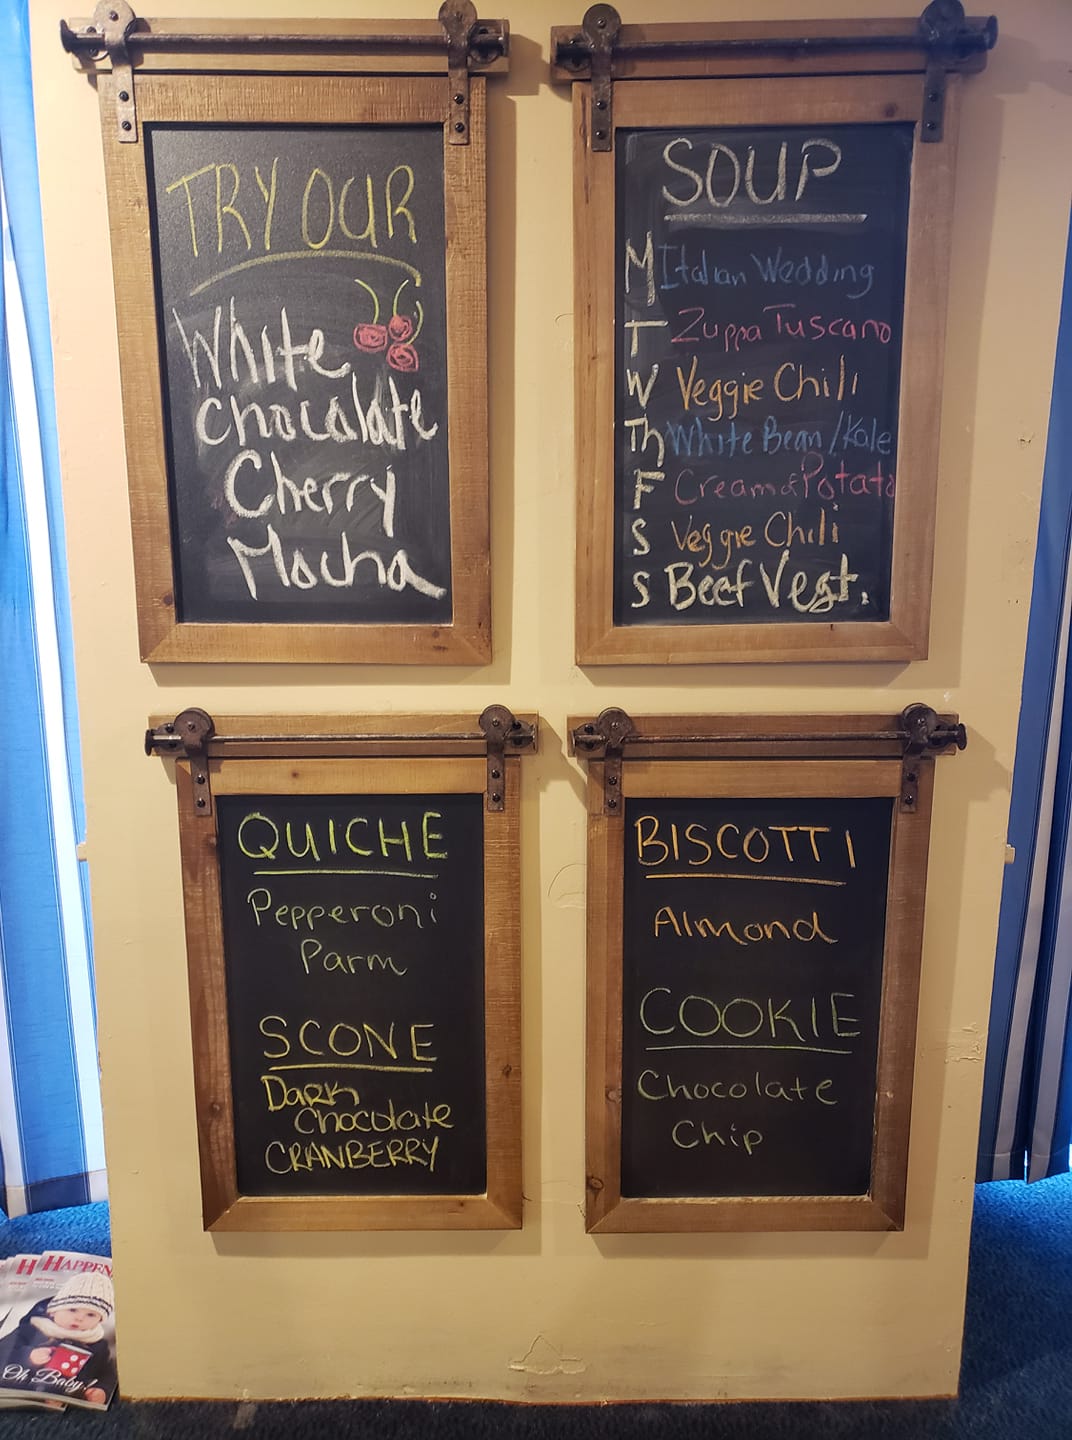 TRY OUR
White
chocolate
Cherry
Mocha
SOUP
M Italian Wedding
T Zuppa Tuscano
W Veggie Chili
Th White Bean/Kale
F Cream of Potato
S Veggie Chili
S Beef Vegt.
QUICHE
Pepperoni
Parm
SCONE
Dark
Chocolate
CRANBERRY
BISCOTTI
Almond
COOKIE
Chocolate
Chip
H HAPPEN
Oh Baby!